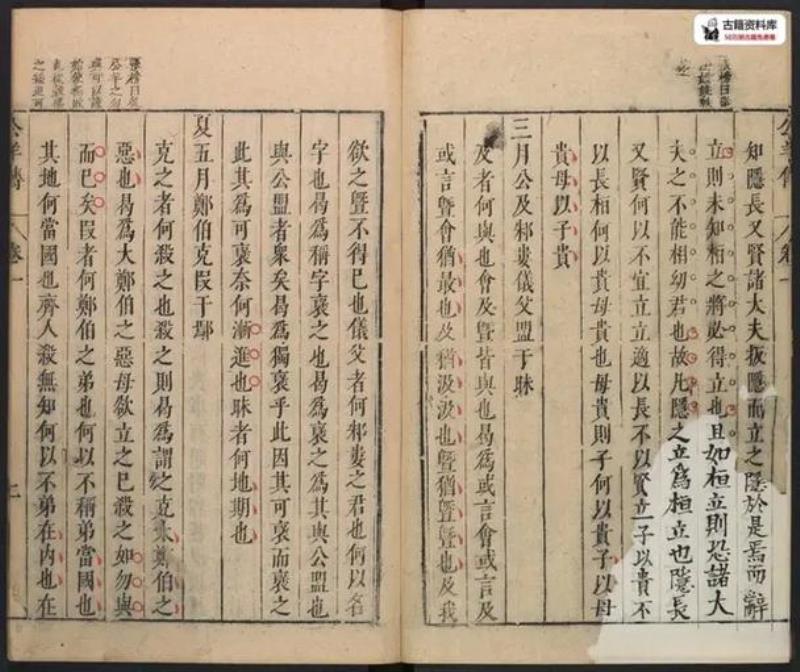 古籍资料库
知隱長又賢諸大夫扳隱而立之隱於是焉而辭
立則未知桓之將必得立也且如桓立則恐諸大
夫之不能相幼君也故凡隱之立爲桓立也隱長
又賢何以不宜立立適以長不以賢立子以貴不
以長桓何以貴母貴也母貴則子何以貴子以母
貴母以子貴
三月公及邾婁儀父盟于眛
及者何與也會及曁皆與也曷爲或言會或言及
或言曁會猶最也及猶汲汲也曁猶曁曁也及我
公羊傳
卷一
欲之曁不得已也儀父者何邾婁之君也何以名
字也曷爲稱字褒之也曷爲褒之爲其與公盟也
與公盟者衆矣曷爲獨褒乎此因其可褒而褒之
此其爲可褒奈何漸進也眛者何地期也
夏五月鄭伯克段于鄢
克之者何殺之也殺之則曷爲謂之克大鄭伯之
惡也曷爲大鄭伯之惡母欲立之已殺之如勿與
而已矣段者何鄭伯之弟也何以不稱弟當國也
其地何當國也齊人殺無知何以不弟在內也在
公羊傳
卷一
二